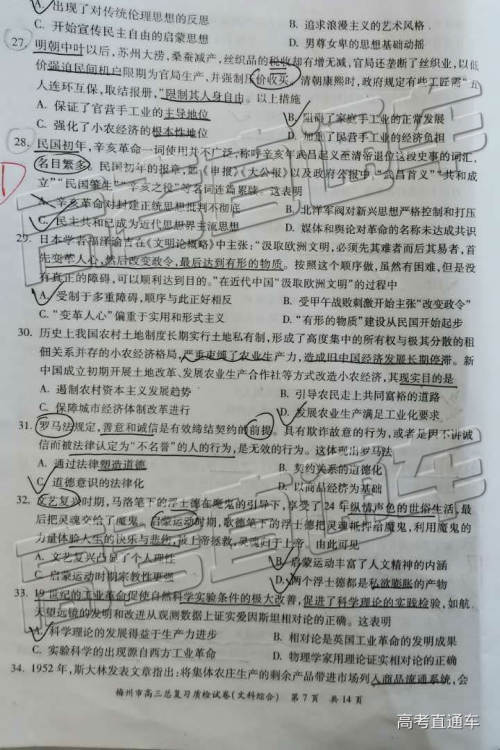 A. 出现了对传统伦理思想的反思
B. 追求浪漫主义的艺术风格
C. 开始宣传民主自由的启蒙思想
D. 男尊女卑的思想基础动摇
27. 明朝中叶以后，苏州大涝，桑蚕减产，丝织品的税收却有增无减，官局还垄断了丝织业，以低
价强迫民间机户限期为官局生产，并强制压价收买。清朝康熙时，政府规定有些工匠需“五
人连环互保，取结报册，”限制其人身自由。以上措施
A. 保证了官营手工业的主导地位
B. 阻碍了家庭手工业的正常发展
C. 强化了小农经济的根本性地位
D. 加重了民营手工业的经济负担
28. 民国初年，辛亥革命一词使用并不广泛，称呼辛亥年武昌起义至清帝退位这段史事的词汇，
名目繁多。民国初年的报章，如《申报》《大公报》以及政府公报中，“武昌首义”“共和成
立”“民国肇生”“辛亥之役”等名词连篇累牍。这表明
A. 辛亥革命对封建正统思想批判不彻底
B. 北洋军阀对新兴思想严格控制和打压
C. 民主共和已成为近代思想界主流思想
D. 媒体和舆论对革命的名称未达成共识
29. 日本学者福泽谕吉在《文明论概略》中主张：“汲取欧洲文明，必须先其难者而后其易者，首
先变革人心，然后改变政令，最后达到有形的物质。按照这个顺序做，虽然有困难，但是没
有真正的障碍，可以顺利达到目的。”在近代中国“汲取欧洲文明”的过程中
A. 受制于多重障碍，顺序与此正好相反
B. 受甲午战败刺激开始主张“改变政令”
C. “变革人心”偏重于实用和形式主义
D. “有形的物质”建设从民国开始起步
30. 历史上我国农村土地制度长期实行土地私有制，形成了高度集中的所有权与极其分散的租
佃关系并存的小农经济格局，严重束缚了农业生产力，造成旧中国经济发展长期停滞。新
中国成立初期开展土地改革、发展农业生产合作社等方式改造小农经济，其现实目的是
A. 遏制农村资本主义发展趋势
B. 引导农民走上共同富裕的道路
C. 保障城市经济体制改革进行
D. 发展农业生产满足工业化要求
31. 罗马法规定，善意和诚信是有效缔结契约的前提。具有欺诈故意的行为，或者是因不讲诚
信而被法律认定为“不名誉”的人的行为，是无效的行为。这体现出罗马法
A. 通过法律塑造道德
B. 契约关系的道德化
C. 道德意识的法律化
D. 以商品经济为基础
32. 文艺复兴时期，马洛笔下的浮士德在魔鬼的引导下，享受了24年纵情声色的世俗生活，最
后把灵魂交给了魔鬼。启蒙运动时期，歌德笔下的浮士德把灵魂抵押给魔鬼，利用魔鬼的
力量体验人生的快乐与悲伤，被上帝拯救，灵魂归于上帝。由此可见
A. 文艺复兴凸显了个人理性
B. 启蒙运动丰富了人文精神的内涵
C. 启蒙运动时期宗教性更强
D. 两个浮士德都是私欲膨胀的产物
33. 19世纪的工业革命促使自然科学实验条件的极大改善，促进了科学理论的实践检验，如航
天望远镜的发明和改进从观测数据上证实爱因斯坦相对论的正确。这表明
A. 科学理论的发展得益于生产力进步
B. 相对论是英国工业革命的发明成果
C. 实验科学的出现源自西方工业革命
D. 物理学家用理论证实相对论的正确
34. 1952年，斯大林发表文章指出：将集体农庄生产的剩余产品带进市场列入商品流通系统，会
梅州市高三总复习质检试卷(文科综合) 第7页 共14页
高考直通车